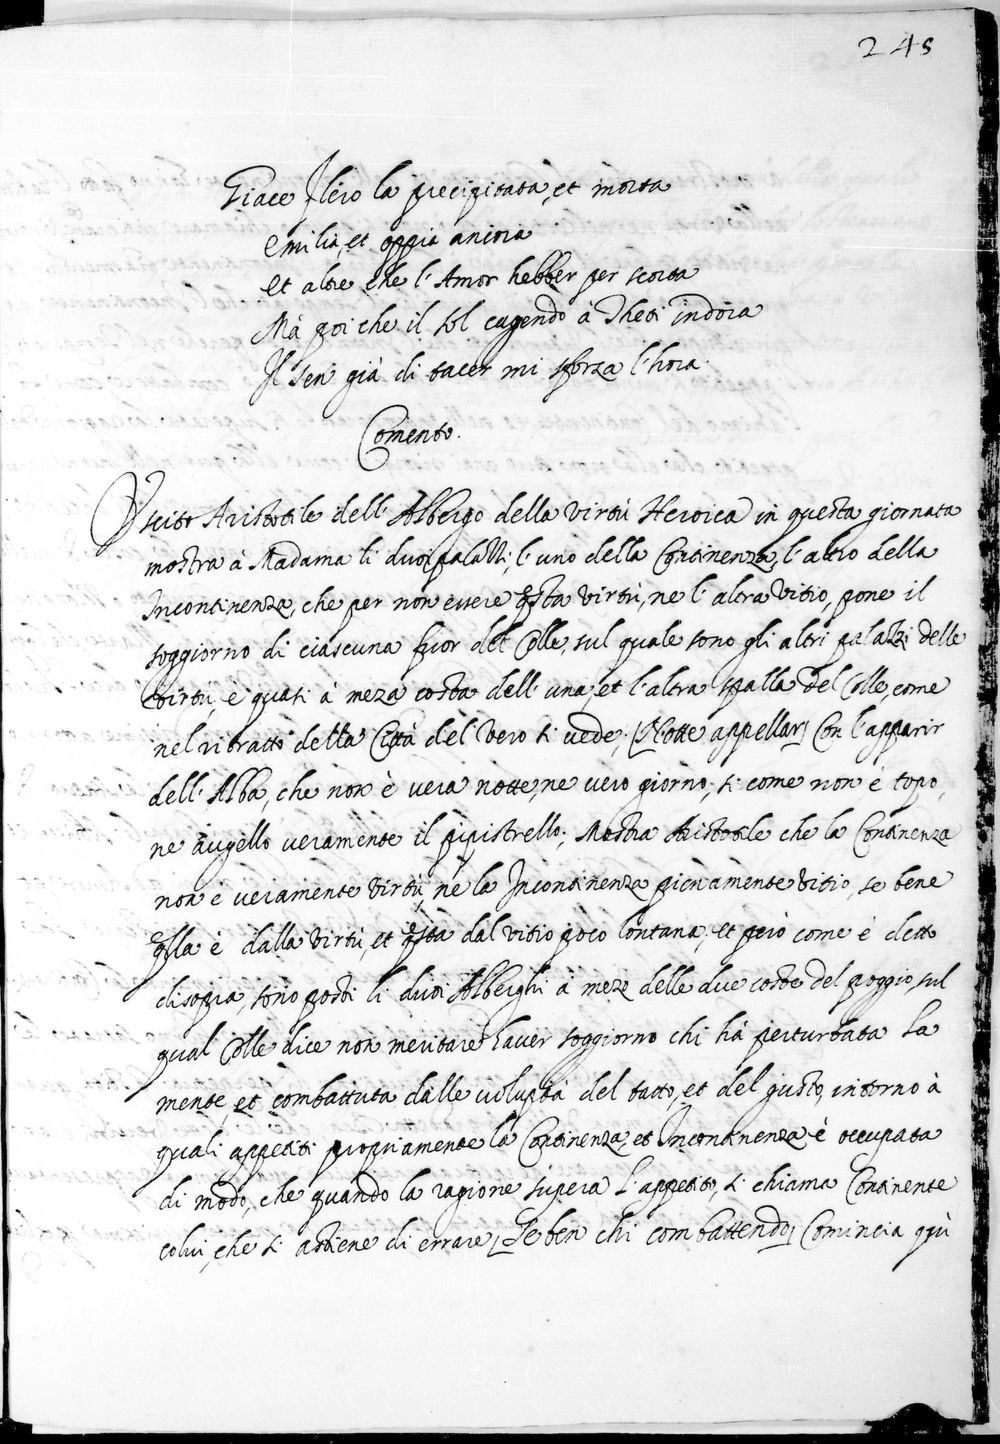 245
Giace Ilero la precipitata, et morta
Emilia, et oppia ancora
Et altre che l'Amor hebber per scorta
Mà poi che il sol cagendo à Theti indora
Il sen già di tacer mi sforza l'hora.
Comento.
Vscito Aristotile dell'Albergo della virtù Heroica in questa giornata
mostra à Madama li duoi palazzi, l'uno della Continenza, l'altro della
Incontinenza, che per non essere questa virtù, ne l'altra Vitio, pone il
soggiorno di ciascuna fuor del Colle, sul quale sono gli altri palazzi delle
virtù, e quasi à meza costa dell'una, et l'altra spalla del Colle, come
nel ritratto della Città del Vero si vede; [Notte appellar] Con l'apparir
dell'Alba, che non è vera notte, ne vero giorno; si come non è topo,
ne augello veramente il pipistrello; Mostra Aristotile che la Continenza
non è veramente virtù, ne la Incontinenza pienamente Vitio, se bene
qlla è dalla virtù, et qsta dal vitio poco lontana, et però come è detto
di sopra, sono posti li duoi Alberghi à meze delle due coste del poggio, sul
qual Colle dice non meritare haver soggiorno chi hà perturbata la
mente, et combattuta dalle voluptà del tatto, et del gusto, intorno à
quali appetiti propriamente la Continenza, et Incontinenza è occupata
di modo, che quando la ragione supera l'appetito, si chiama Continente
colui, che si astiene di errare, [Se ben chi combattendo] Comincia quì